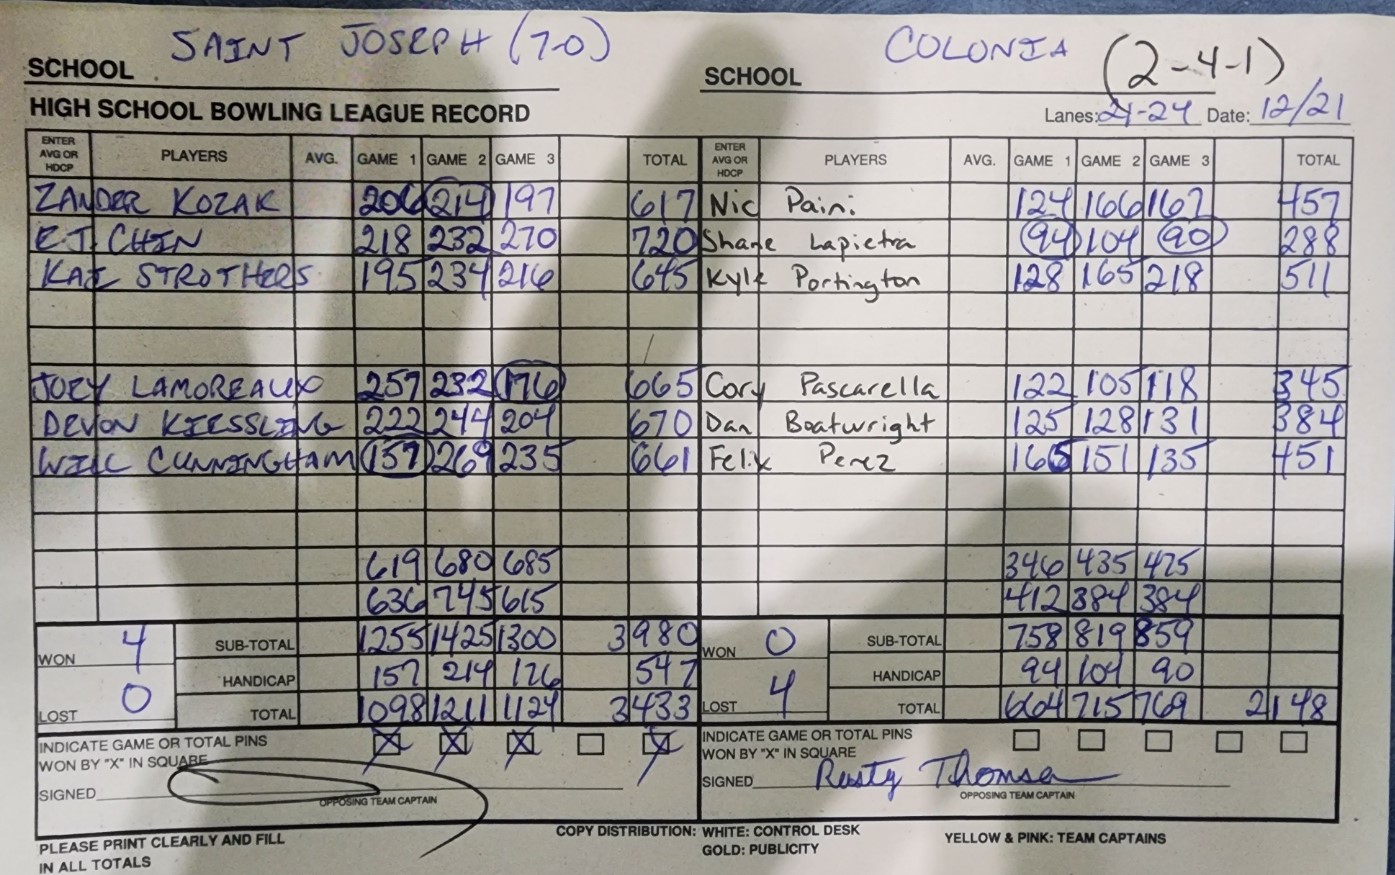 SCHOOL SAINT JOSEPH (7-0) SCHOOL COLONIA (2-4-1)
HIGH SCHOOL BOWLING LEAGUE RECORD Lanes: 21-24 Date: 12/21
ENTER AVG OR HDCP PLAYERS AVG. GAME 1 GAME 2 GAME 3 TOTAL ENTER AVG OR HDCP PLAYERS AVG. GAME 1 GAME 2 GAME 3 TOTAL
ZANDER KOZAK 206 214 197 617 Nic Paini 124 166 167 457
E.J. CHIN 218 232 270 720 Shane Lapietra 94 104 90 288
KAI STROTHERS 195 234 216 645 Kyle Portington 128 165 218 511
JOEY LAMOREAUX 257 232 176 665 Cory Pascarella 122 105 118 345
DEVON KIESSLING 222 244 204 670 Dan Boatwright 125 128 131 384
WILL CUNNINGHAM 157 269 235 661 Felix Perez 165 151 135 451
619 680 685 346 435 475
636 745 615 412 384 384
WON 4 SUB-TOTAL 1255 1425 1300 3980 WON 0 SUB-TOTAL 758 819 859
HANDICAP 157 214 176 547 HANDICAP 94 104 90
LOST 0 TOTAL 1098 1211 1124 3433 LOST 4 TOTAL 664 715 769 2148
INDICATE GAME OR TOTAL PINS X X X X INDICATE GAME OR TOTAL PINS
WON BY "X" IN SQUARE WON BY "X" IN SQUARE
SIGNED SIGNED Rusty Thomsen
OPPOSING TEAM CAPTAIN OPPOSING TEAM CAPTAIN
PLEASE PRINT CLEARLY AND FILL COPY DISTRIBUTION: WHITE: CONTROL DESK YELLOW & PINK: TEAM CAPTAINS
IN ALL TOTALS GOLD: PUBLICITY